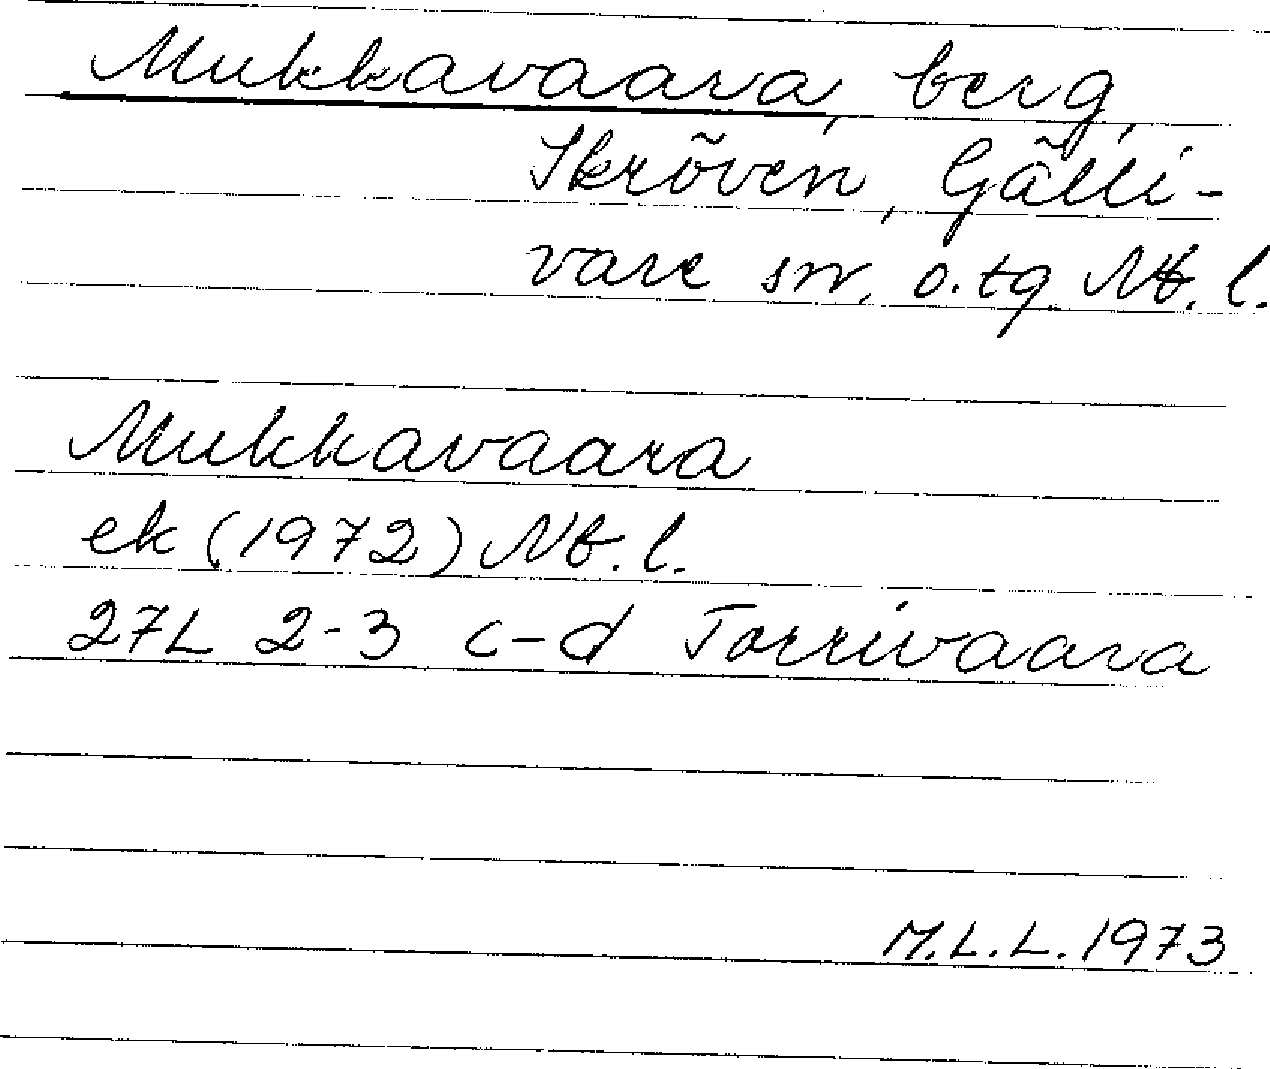 Mukkavaara, berg,
Skröven, Gälli-
vare sn. o. tg. Nb. l.
Mukkavaara
ek (1972) Nb. l.
27L 2-3 c-d Torrivaara
M.L.L. 1973